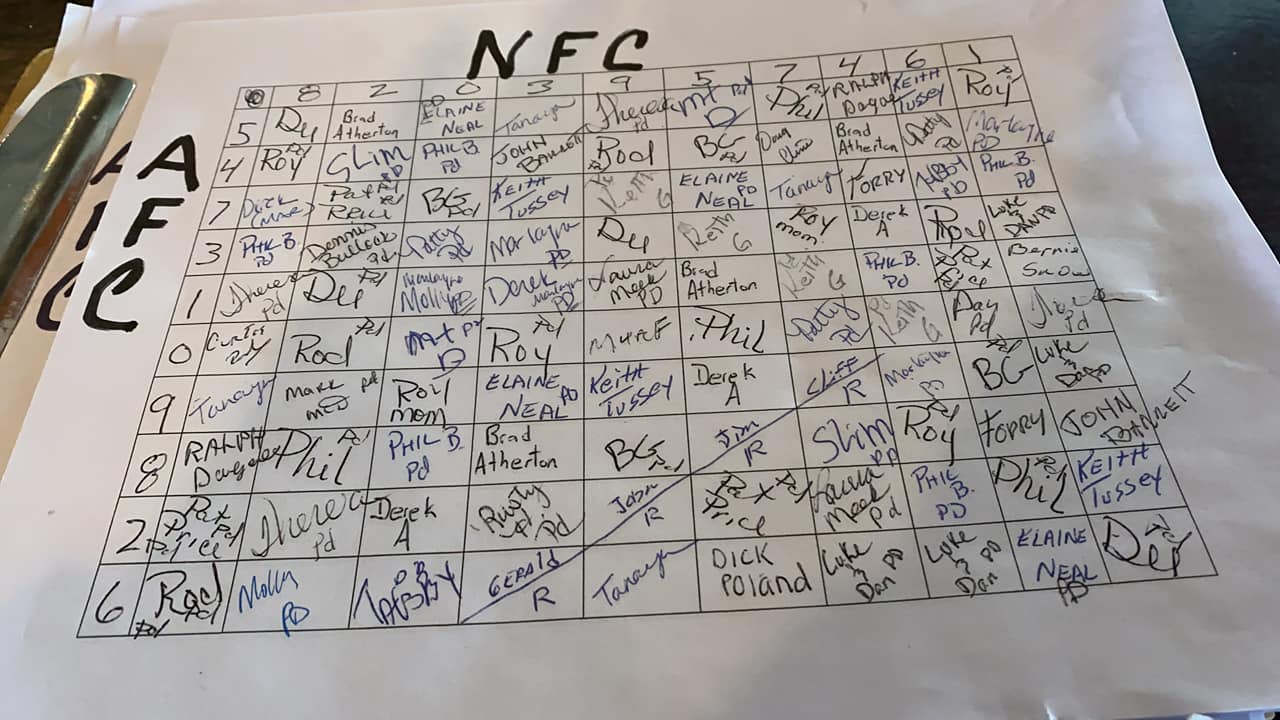 NFC
AFC
8 2 0 3 9 5 7 4 6 1
5 Dey Brad Atherton PD ELAINE NEAL Tanaya Theresa Pd MT PD D Phil Pd RALPH KEITH TUSSEY Roy Pd
4 Roy SLIM PD PHIL B. Pd JOHN BARRETT Rod Pd BG Pd Doug Cline Brad Atherton Patty Pd Marlayna PD
7 Dick BG Pd KEITH TUSSEY Pd Keith G ELAINE NEAL PD Tanaya TORRY TABBY PD PHIL B. Pd
3 PHIL B. Pd Dennis Bullock Pd Patty Pd Marlayna PD Dey Keith G Roy mom Derek A Rod Luke & DAN PD
1 Theresa Pd Dey Pd Marlayna Molly PD Derek Marlayna PD Laura Meek PD Brad Atherton Pd Keith G PHIL B. Pd Rex Price Bernie Snow
0 Curtis Rod Pd MT PD D Roy Pd Phil Patty Pd Pd Keith G Day Pd Theresa Pd
9 Tanaya MARK MED Pd Roy mom ELAINE NEAL PD KEITH TUSSEY Derek A CLIFF R Marlayna PD BG Pd Luke & Dan PD
8 RALPH Phil Pd PHIL B. Pd Brad Atherton BG Pd Jim R Slim PD Roy Pd TORRY JOHN BARRETT
2 Rex Price Pd Theresa Pd Derek A Rusty Pd John R Rex Price Pd Laura Meek Pd PHIL B. PD Phil Pd KEITH TUSSEY
6 Rod Pd Molly PD TABBY GERALD R Tanaya DICK POLAND Luke & Dan PD Luke & Dan PD ELAINE NEAL PD Dey Pd